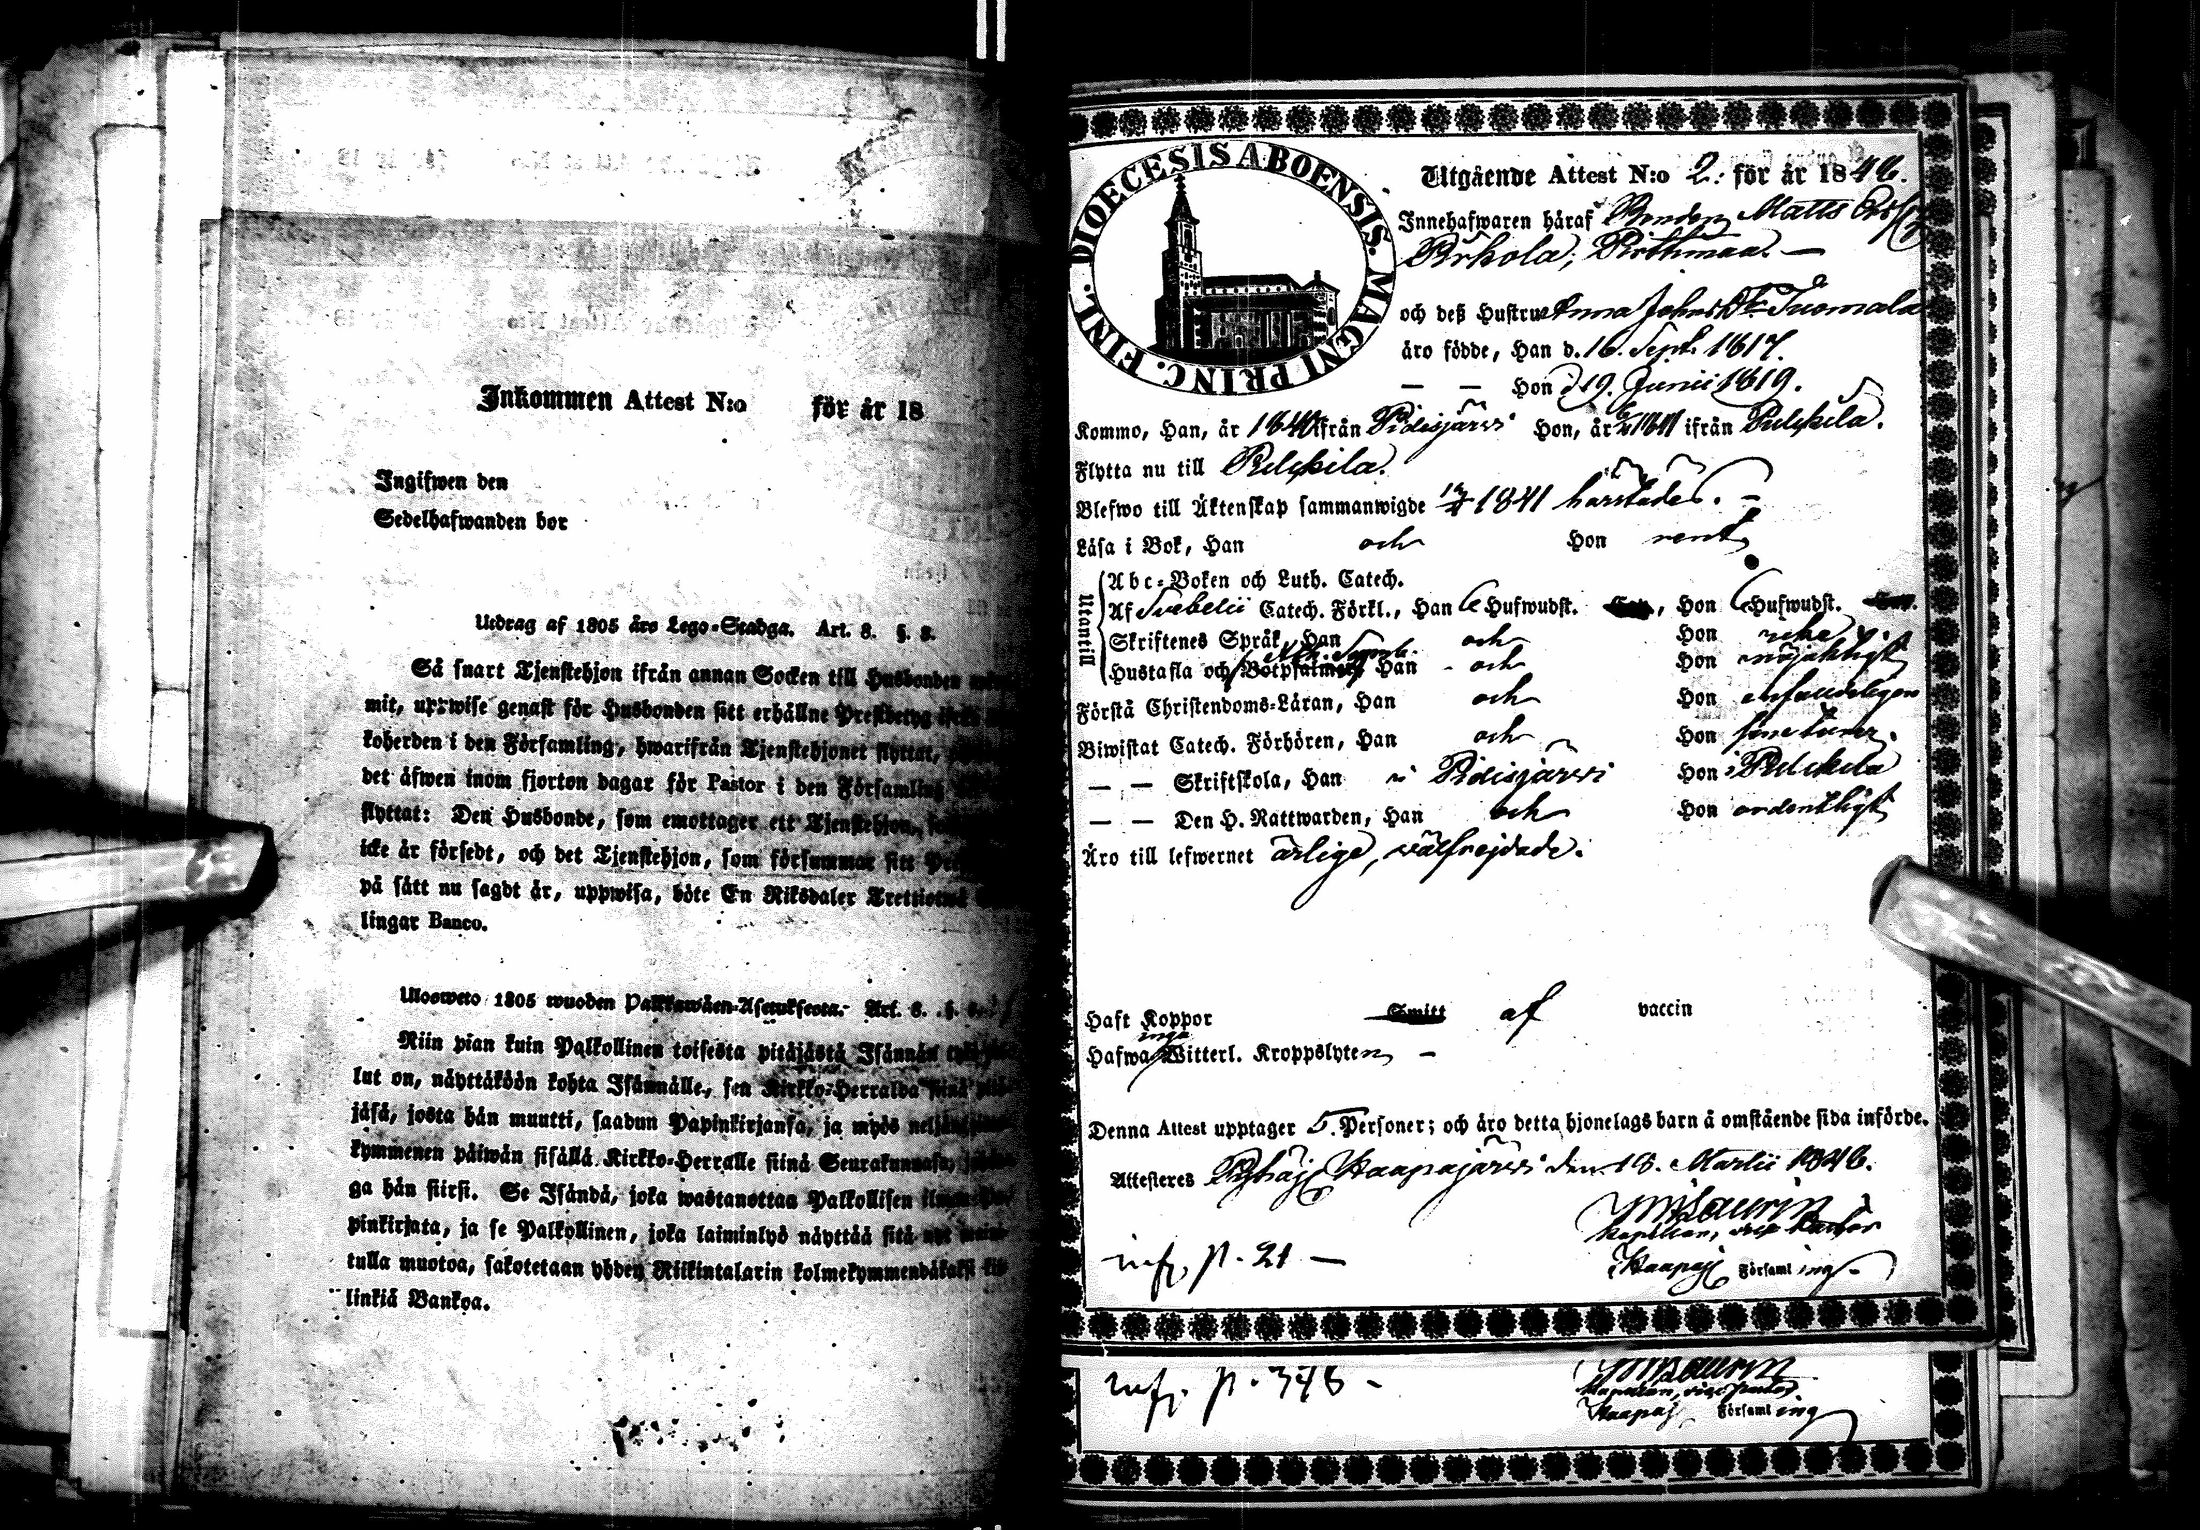 Inkommen Attest N:o för år 18
Ingifwen den
Sedelhafwanden bor
Utdrag af 1805 års Lego-Stadga. Art. 8. §. 8.
Så snart Tjenstehjon ifrån annan Socken till Husbonden
mit, uppwise genast för Husbonden sitt erhållne Prestbetyg
koherden i den Församling, hwarifrån Tjenstehjonet flyttat,
det äfwen inom fjorton dagar för Pastor i den Församling
flyttat: Den Husbonde, som emottager ett Tjenstehjon,
icke är försedt, och det Tjenstehjon, som försummar sitt
på sätt nu sagdt är, uppwisa, böte En Riksdaler Trettiotwå
lingar Banco.
Ulosweto 1805 wuoden Palkkawäen-Asetuksesta. Art. 8. §. 8.
Niin pian kuin Palkollinen toisesta pitäjästä Isännän
lut on, näyttäköön kohta Isännälle, sen Kirkko-Herralda siinä
jäsä, josta hän muutti, saadun Papinkirjansa, ja myös
kymmenen päiwän sisällä Kirkko-Herralle siinä Seurakunnasa,
ga hän siirsi. Se Isändä, joka wastanottaa Palkollisen
pinkirjata, ja se Palkollinen, joka laiminlyö näyttää sitä nyt
tulla muotoa, sakotetaan yhden Riikintalarin kolmekymmendäkaksi
linkiä Bankoa.
DIOECESIS ABOENSIS. MAGNI PRINC. FINL.
Utgående Attest N:o 2. för år 1846.
Innehafwaren häraf Bonden Matts
Pirkola, Pirttimaa. —
och deß Hustru Anna Johns Dr Tuomala
äro födde, Han d. 16. Sept. 1817.
— — Hon d 19. Junii 1819.
Kommo, Han, år 1840 ifrån Pidisjärvi Hon, år 1841 ifrån Pulkkila.
Flytta nu till Pulkkila.
Blefwo till Äktenskap sammanwigde 1841 härstädes. —
Läsa i Bok, Han och Hon rent
Utantill
Abc-Boken och Luth. Catech.
Af Svebelii Catech. Förkl., Han 6 Hufwudst. Hon 6 Hufwudst.
Skriftenes Språk, Han och Hon
Hustafla och Ath. Symb. Botpsalmern Han och Hon nöjaktigt
Förstå Christendoms-Läran, Han och Hon enfaldeligen
Biwistat Catech. Förhören, Han och Hon sine turer.
— — Skriftskola, Han i Pidisjärvi Hon i Pulkkila
— — Den H. Nattwarden, Han och Hon ordentligt
Äro till lefwernet ärlige, välfrejdade.
Haft Koppor Smitt af vaccin
Hafwa inga Witterl. Kroppslyten —
Denna Attest upptager 5. Personer; och äro detta hjonelags barn å omstående sida införde.
Attesteres Pyhäj Haapajärvi den 18. Martii 1846.
Kapellan, vice Pastor
Haapaj Församling.
inf. p. 21 —
inf. p. 346 —
Kapellan, vice Pastor
Haapaj Församling